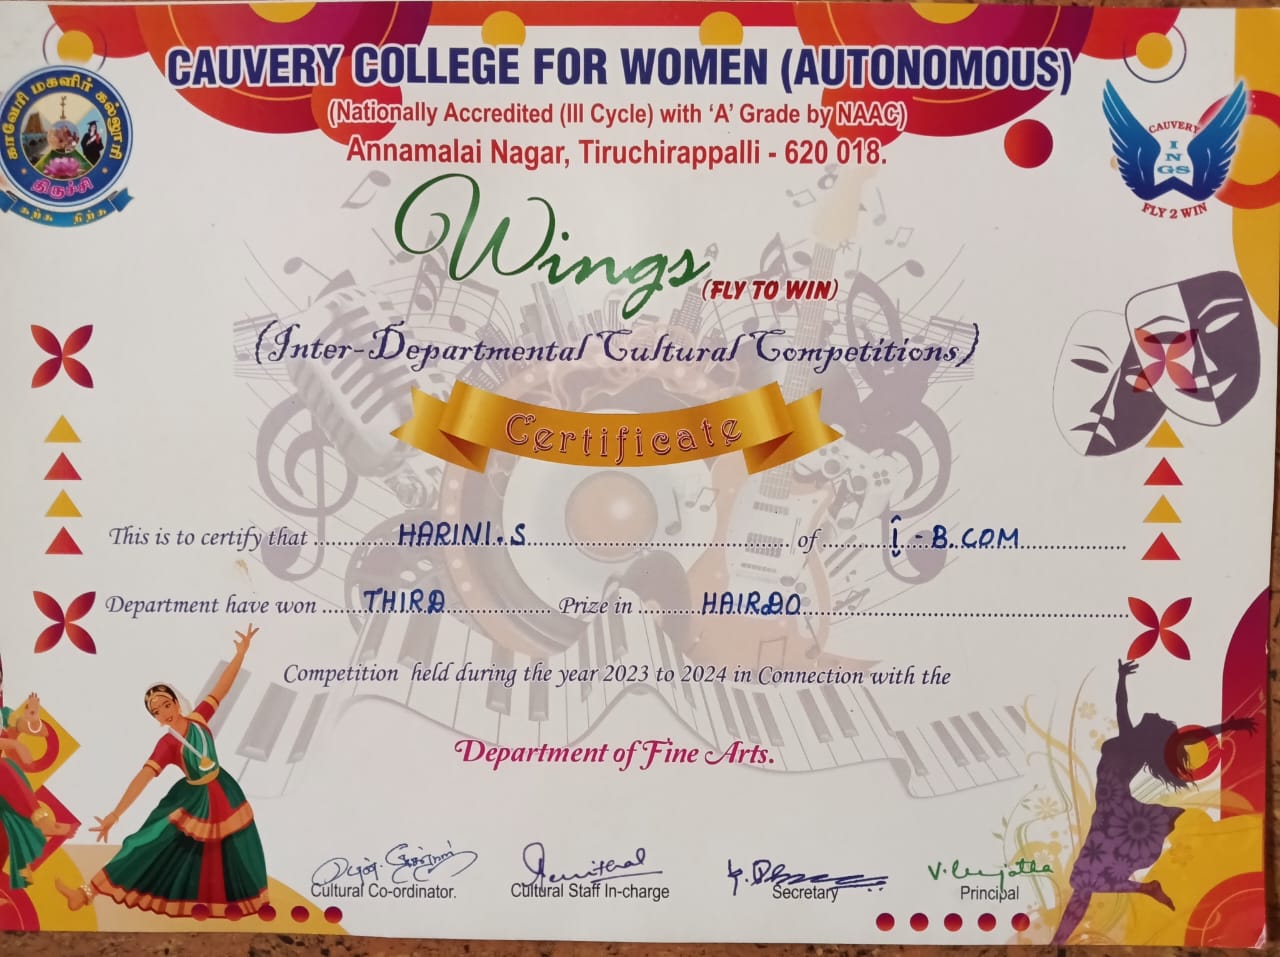 CAUVERY COLLEGE FOR WOMEN (AUTONOMOUS)
(Nationally Accredited (III Cycle) with ‘A’ Grade by NAAC)
Annamalai Nagar, Tiruchirappalli - 620 018.
காவேரி மகளிர் கல்லூரி
திருச்சி
கற்க நிற்க
CAUVERY
WINGS
FLY 2 WIN
Wings
(FLY TO WIN)
(Inter-Departmental Cultural Competitions)
Certificate
This is to certify that HARINI.S of I - B.COM
Department have won THIRD Prize in HAIRDO
Competition held during the year 2023 to 2024 in Connection with the
Department of Fine Arts.
V. Sujatha
Cultural Co-ordinator. Cultural Staff In-charge Secretary Principal